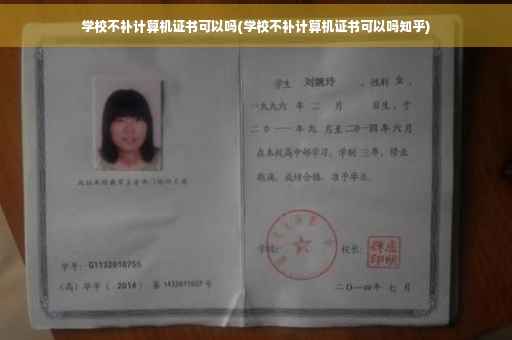 学校不补计算机证书可以吗(学校不补计算机证书可以吗知乎)
学生 刘婉玲 ，性别 女 ，
一九九六 年 二 月 日生，于
二〇一一 年 九 月至 二〇一四 年 六 月
在本校高中部学习，学制 三 年，修业
期满，成绩合格，准予毕业。
学号: G1132010755
(高) 毕字 ( 2014 ) 第 1432011027 号
学校:
校长:
二〇一四年 七 月